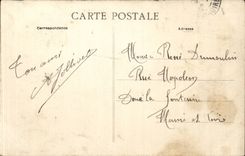 CARTE POSTALE
Correspondance
Adresse
Ton ami
Jollivet
René Dumoulin
Rue
Doué la Fontaine
Maine et Loire